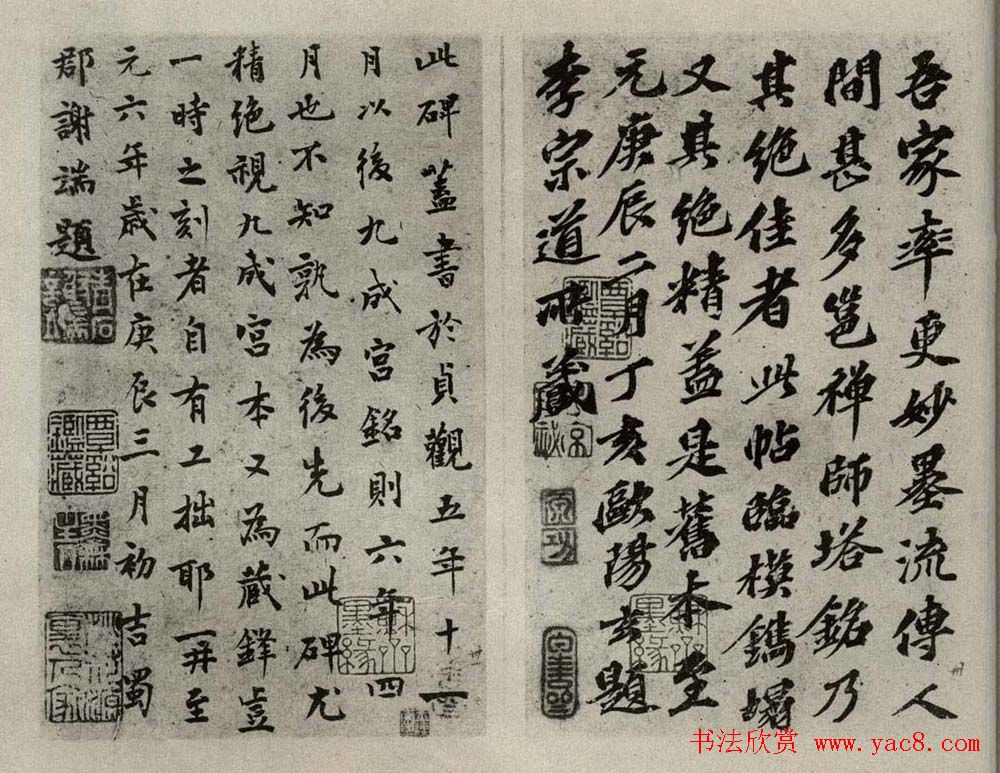 吾家率更妙墨流傳人
間甚多邕禅師塔銘乃
其绝佳者此帖臨模鐫搨
又其绝精盖是舊本至
元庚辰二月丁亥歐陽玄題
李宗道所藏
此碑蓋書於貞觀五年十一
月以後九成宫銘則六年四
月也不知孰為後先而此碑尤
精绝視九成宫本又為蔵鋒豈
一時之刻者自有工拙耶再至
元六年歳在庚辰三月初吉蜀
郡謝端題
书法欣赏 www.yac8.com